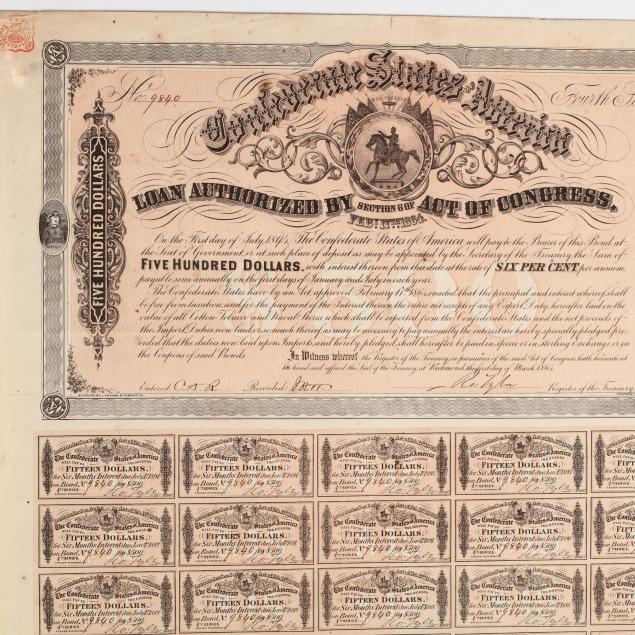 No. 9840
Fourth
Confederate States of America
LOAN AUTHORIZED BY SECTION 6 OF ACT OF CONGRESS,
FEB: 17TH 1864.
FIVE HUNDRED DOLLARS
On the First day of July, 1894, The Confederate States of America will pay to the Bearer of this Bond, at
the Seat of Government or at such place of deposit as may be appointed by the Secretary of the Treasury, the Sum of
FIVE HUNDRED DOLLARS, with interest thereon from this date at the rate of SIX PER CENT per annum
payable semi-annually on the first days of January and July in each year.
The Confederate States have by an Act approved February 17th 1864, enacted that the principal and interest whereof shall
be free from taxation, and for the payment of the Interest thereon, the entire net receipts of any Export Duty, hereafter laid on the
value of all Cotton Tobacco and Naval Stores, which shall be exported from the Confederate States and the net proceeds of
the Import Duties now laid, or so much thereof as may be necessary to pay annually the interest, are hereby specially pledged, pro-
vided that the duties now laid upon Imports, and hereby pledged, shall hereafter be paid in specie or in sterling Exchange, or in
the Coupons of said Bonds.
In Witness whereof the Register of the Treasury, in pursuance of the said Act of Congress, hath hereunto set
his hand and affixed the Seal of the Treasury, at Richmond, the first day of March 1864
Entered C A R Recorded
Ro. Tyler Register of the Treasury
The Confederate States of America
FIFTEEN DOLLARS,
for Six Months Interest due
on Bond, No. 9840 for $500
4TH SERIES
Ro. Tyler
The Confederate States of America
FIFTEEN DOLLARS,
for Six Months Interest due
on Bond, No. 9840 for $500
4TH SERIES
Ro. Tyler
The Confederate States of America
FIFTEEN DOLLARS,
for Six Months Interest due
on Bond, No. 9840 for $500
4TH SERIES
Ro. Tyler
The Confederate States of America
FIFTEEN DOLLARS,
for Six Months Interest due
on Bond, No. 9840 for $500
4TH SERIES
Ro. Tyler
The Confederate States of America
FIFTEEN DOLLARS,
for Six Months Interest due
on Bond, No. 9840 for $500
4TH SERIES
Ro. Tyler
The Confederate States of America
FIFTEEN DOLLARS,
for Six Months Interest due
on Bond, No. 9840 for $500
4TH SERIES
Ro. Tyler
The Confederate States of America
FIFTEEN DOLLARS,
for Six Months Interest due
on Bond, No. 9840 for $500
4TH SERIES
Ro. Tyler
The Confederate States of America
FIFTEEN DOLLARS,
for Six Months Interest due
on Bond, No. 9840 for $500
4TH SERIES
Ro. Tyler
The Confederate States of America
FIFTEEN DOLLARS,
for Six Months Interest due
on Bond, No. 9840 for $500
The Confederate States of America
FIFTEEN DOLLARS,
for Six Months Interest due
on Bond, No. 9840 for $500
The Confederate States of America
FIFTEEN DOLLARS,
for Six Months Interest due
on Bond, No. 9840 for $500
The Confederate States of America
FIFTEEN DOLLARS,
for Six Months Interest due
on Bond, No. 9840 for $500